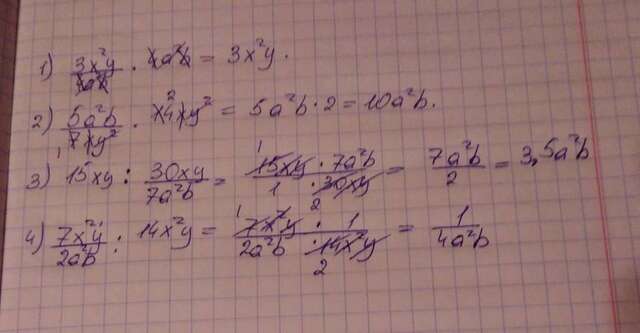 1) 3x²y/4a²b · 4a²b = 3x²y.
2) 5a²b/7xy² · 14xy² = 5a²b·2 = 10a²b.
3) 15xy : 30xy/7a²b = 15xy · 7a²b/1 · 30xy = 7a²b/2 = 3,5a²b
4) 7x²y/2a²b : 14x²y = 7x²y · 1/2a²b · 14x²y = 1/4a²b